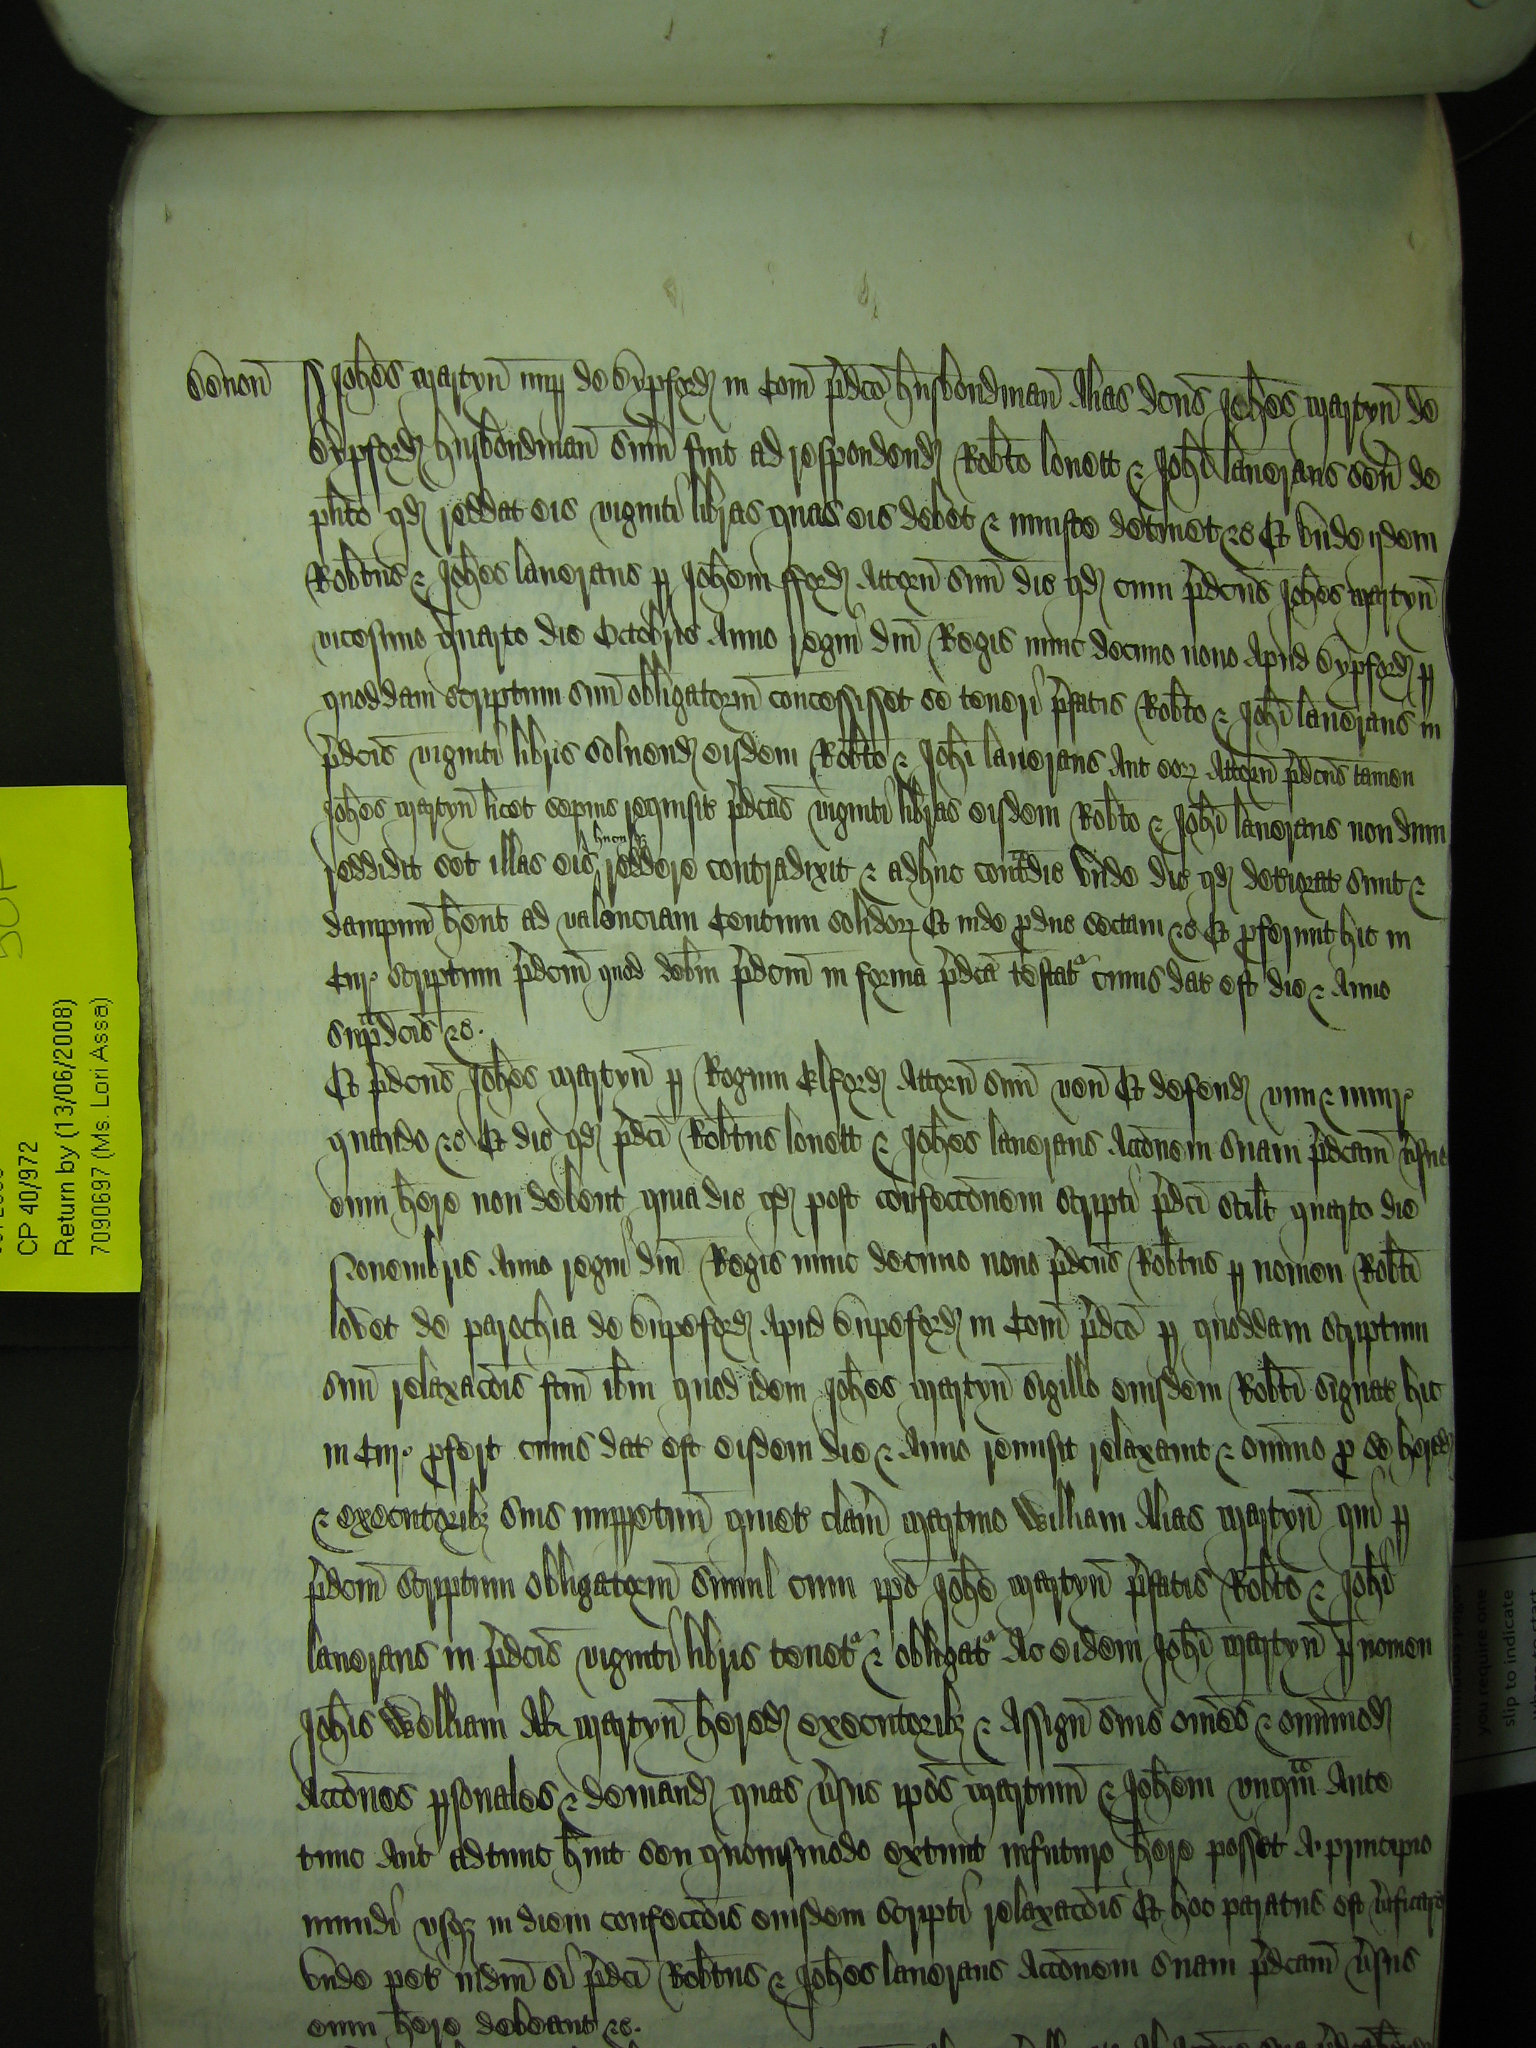 Devon
ss Joħes Martyn nup de Uppford in Com p̄dco husbondman alias dcus Joħes Martyn de
Uppford husbondman sum̄ fuit ad respondend Robto Lovett & Joħi Laverans sen de
plito qd reddat eis viginti libras quas eis debet & iniuste detinet &c Et unde idem
Robtus & Joħes Laverans p Joħem fford attorn suu dic qd cum p̄dcus Joħes Martyn
vicesimo quarto die Octobris anno regni dni Regis nunc decimo nono apud Uppford p
quoddam scriptum suu obligatoriu concessisset se teneri p̄fatis Robto & Joħi Laverans in
p̄dcis viginti libris solvend eisdem Robto & Joħi Laverans aut eoꝝ attorn p̄dcus tamen
Joħes Martyn licet sepius requisit p̄dcas viginti libras eisdem Robto & Joħi Laverans nondum
reddidit set illas eis hucusqꝫ reddere contradixit & adhuc contᵃdic unde dic qd deteriorat sunt &
dampnu hent ad valenciam Centum solidoꝝ Et inde produc sectam &c Et proferunt hic in
Cur scriptum p̄dcm quod debm p̄dcm in forma p̄dca testatᵃ cuius dat est die & anno
sup̄dcis &c.
Et p̄dcus Joħes Martyn p Rogum Elford attorn suu ven Et defend vim & iniur
quando &c Et dic qd p̄dci Robtus Lovett & Joħes Laverans accoem suam p̄dcam vsus
eum here non debent quia dic qd post confeccoem scripti p̄dci scilt quarto die
Novembris anno regni dni Regis nunc decimo nono p̄dcus Robtus p nomen Robti
lovet de parochia de Uupeford apud Uupeford in Com p̄dco p quoddam scriptum
suu relaxacois fcm ibm quod idem Joħes Martyn sigillo eiusdem Robti signat hic
in Cur profert cuius dat est eisdem die & anno remisit relaxavit & omnino pro se hered
& executoribꝫ suis imppetuu quiet clam Martino William alias Martyn qui p
p̄dcm scriptum obligatoriu simul cum ipo Joħe Martyn p̄fatis Robto & Joħi
Laverans in p̄dcis viginti libris tenetᵃ & obligatᵃ ac eidem Joħi Martyn p nomen
Joħis William als Martyn hered executoribꝫ & assign suis omes & omimod
accoes psonales & demand quas vsus ipos Martinu & Joħem unqᵃm ante
tunc aut adtunc huit seu quovismodo extunc infuturo here posset a principio
mundi usqꝫ in diem confeccois eiusdem scripti relaxacois Et hoc paratus est vificare
unde pet iudm si p̄dci Robtus & Joħes Laverans accoem suam p̄dcam vsus
eum here debeant &c.
CP 40/972
Return by (13/06/2008)
7090697 (Ms. Lori Assa)
you require one
slip to indicate